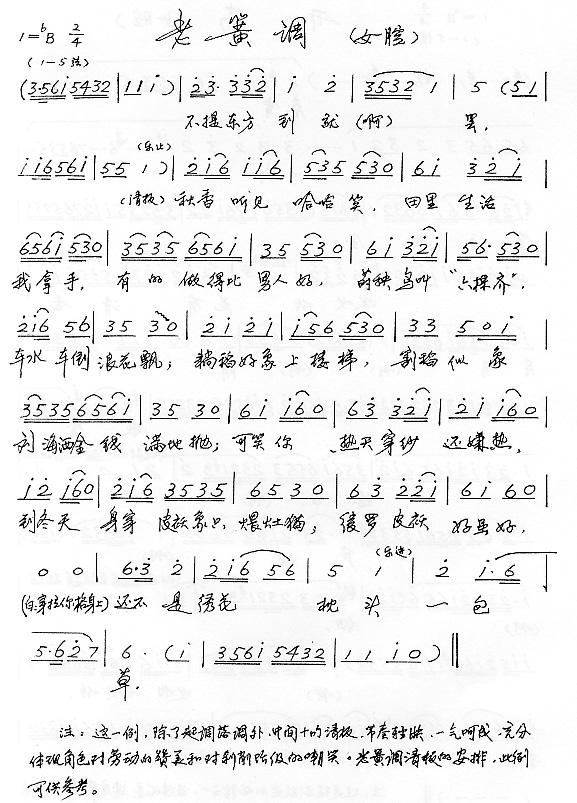 1=ᵇB 2/4 老簧调 (女腔)
(1—5弦)
(3·56i 5432 | 1 1 i ) | 2·3· 3 3 2 | i 2 | 3532 1 | 5 (51 |
不提东方 到 就 (啊) 罢,
(乐止)
i i 6561 | 55 1 ) | 2 i 6 i i 6 | 535 530 | 6 i 3 2 i |
(清板) 秋香 听见 哈哈笑, 田里 生活
6561 530 | 3535 6561 | 35 530 | 6 i 3 2 i | 56· 530 |
我拿手, 有的 做得比 男人好, 莳秧鸟叫 “六棵齐”,
2 i 6 56 | 35 30 | 2 i 2 i | i 56 530 | 33 5 0 i |
车水 车倒 浪花飘; 耥稻好象 上楼梯, 割稻 似 象
3535 6561 | 35 30 | 6 i i 60 | 63 3 2 i | 2 i i 60 |
刘海洒金钱 满地抛; 可笑你 热天穿纱 还嫌热,
i 2 i 60 | 2 i 6 3535 | 65 30 | 63 2 2 i | 6 i 60 |
到冬天 身穿 皮袄象只 煨灶猫; 绫罗 皮袄 好虽好,
(乐进)
0 0 | 6·3 2 | 2 i 6 56 | 5 1 | 2 i·6
(白:穿拉你格身上) 还不 是绣花 枕 头 一 包
5·627 | 6· (i | 3561 5432 | 1 1 i 0 ) ‖
草.
注: 这一例, 除了起调落调外, 中间十的清板, 节奏轻快, 一气呵成, 充分
体现角色对劳动的赞美和对剥削阶级的嘲笑。老簧调清板的安排, 此例
可供参考。